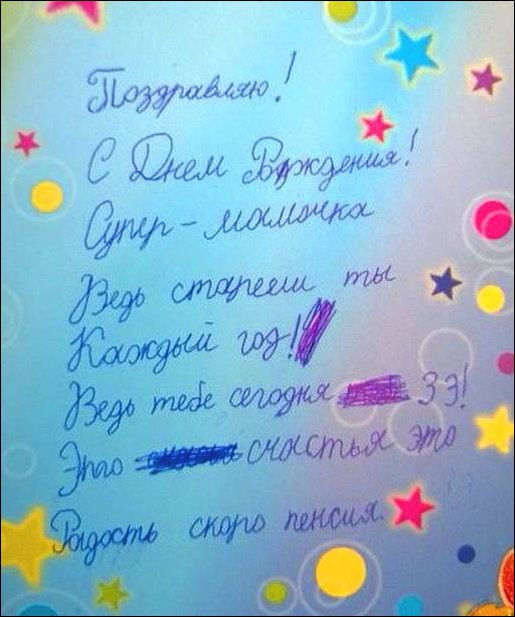 Поздравляю!
С Днем Рождения!
Супер - мамочка
Ведь старееш ты
Каждый год!
Ведь тебе сегодня 33!
Это счастья это
Радость скоро пенсия